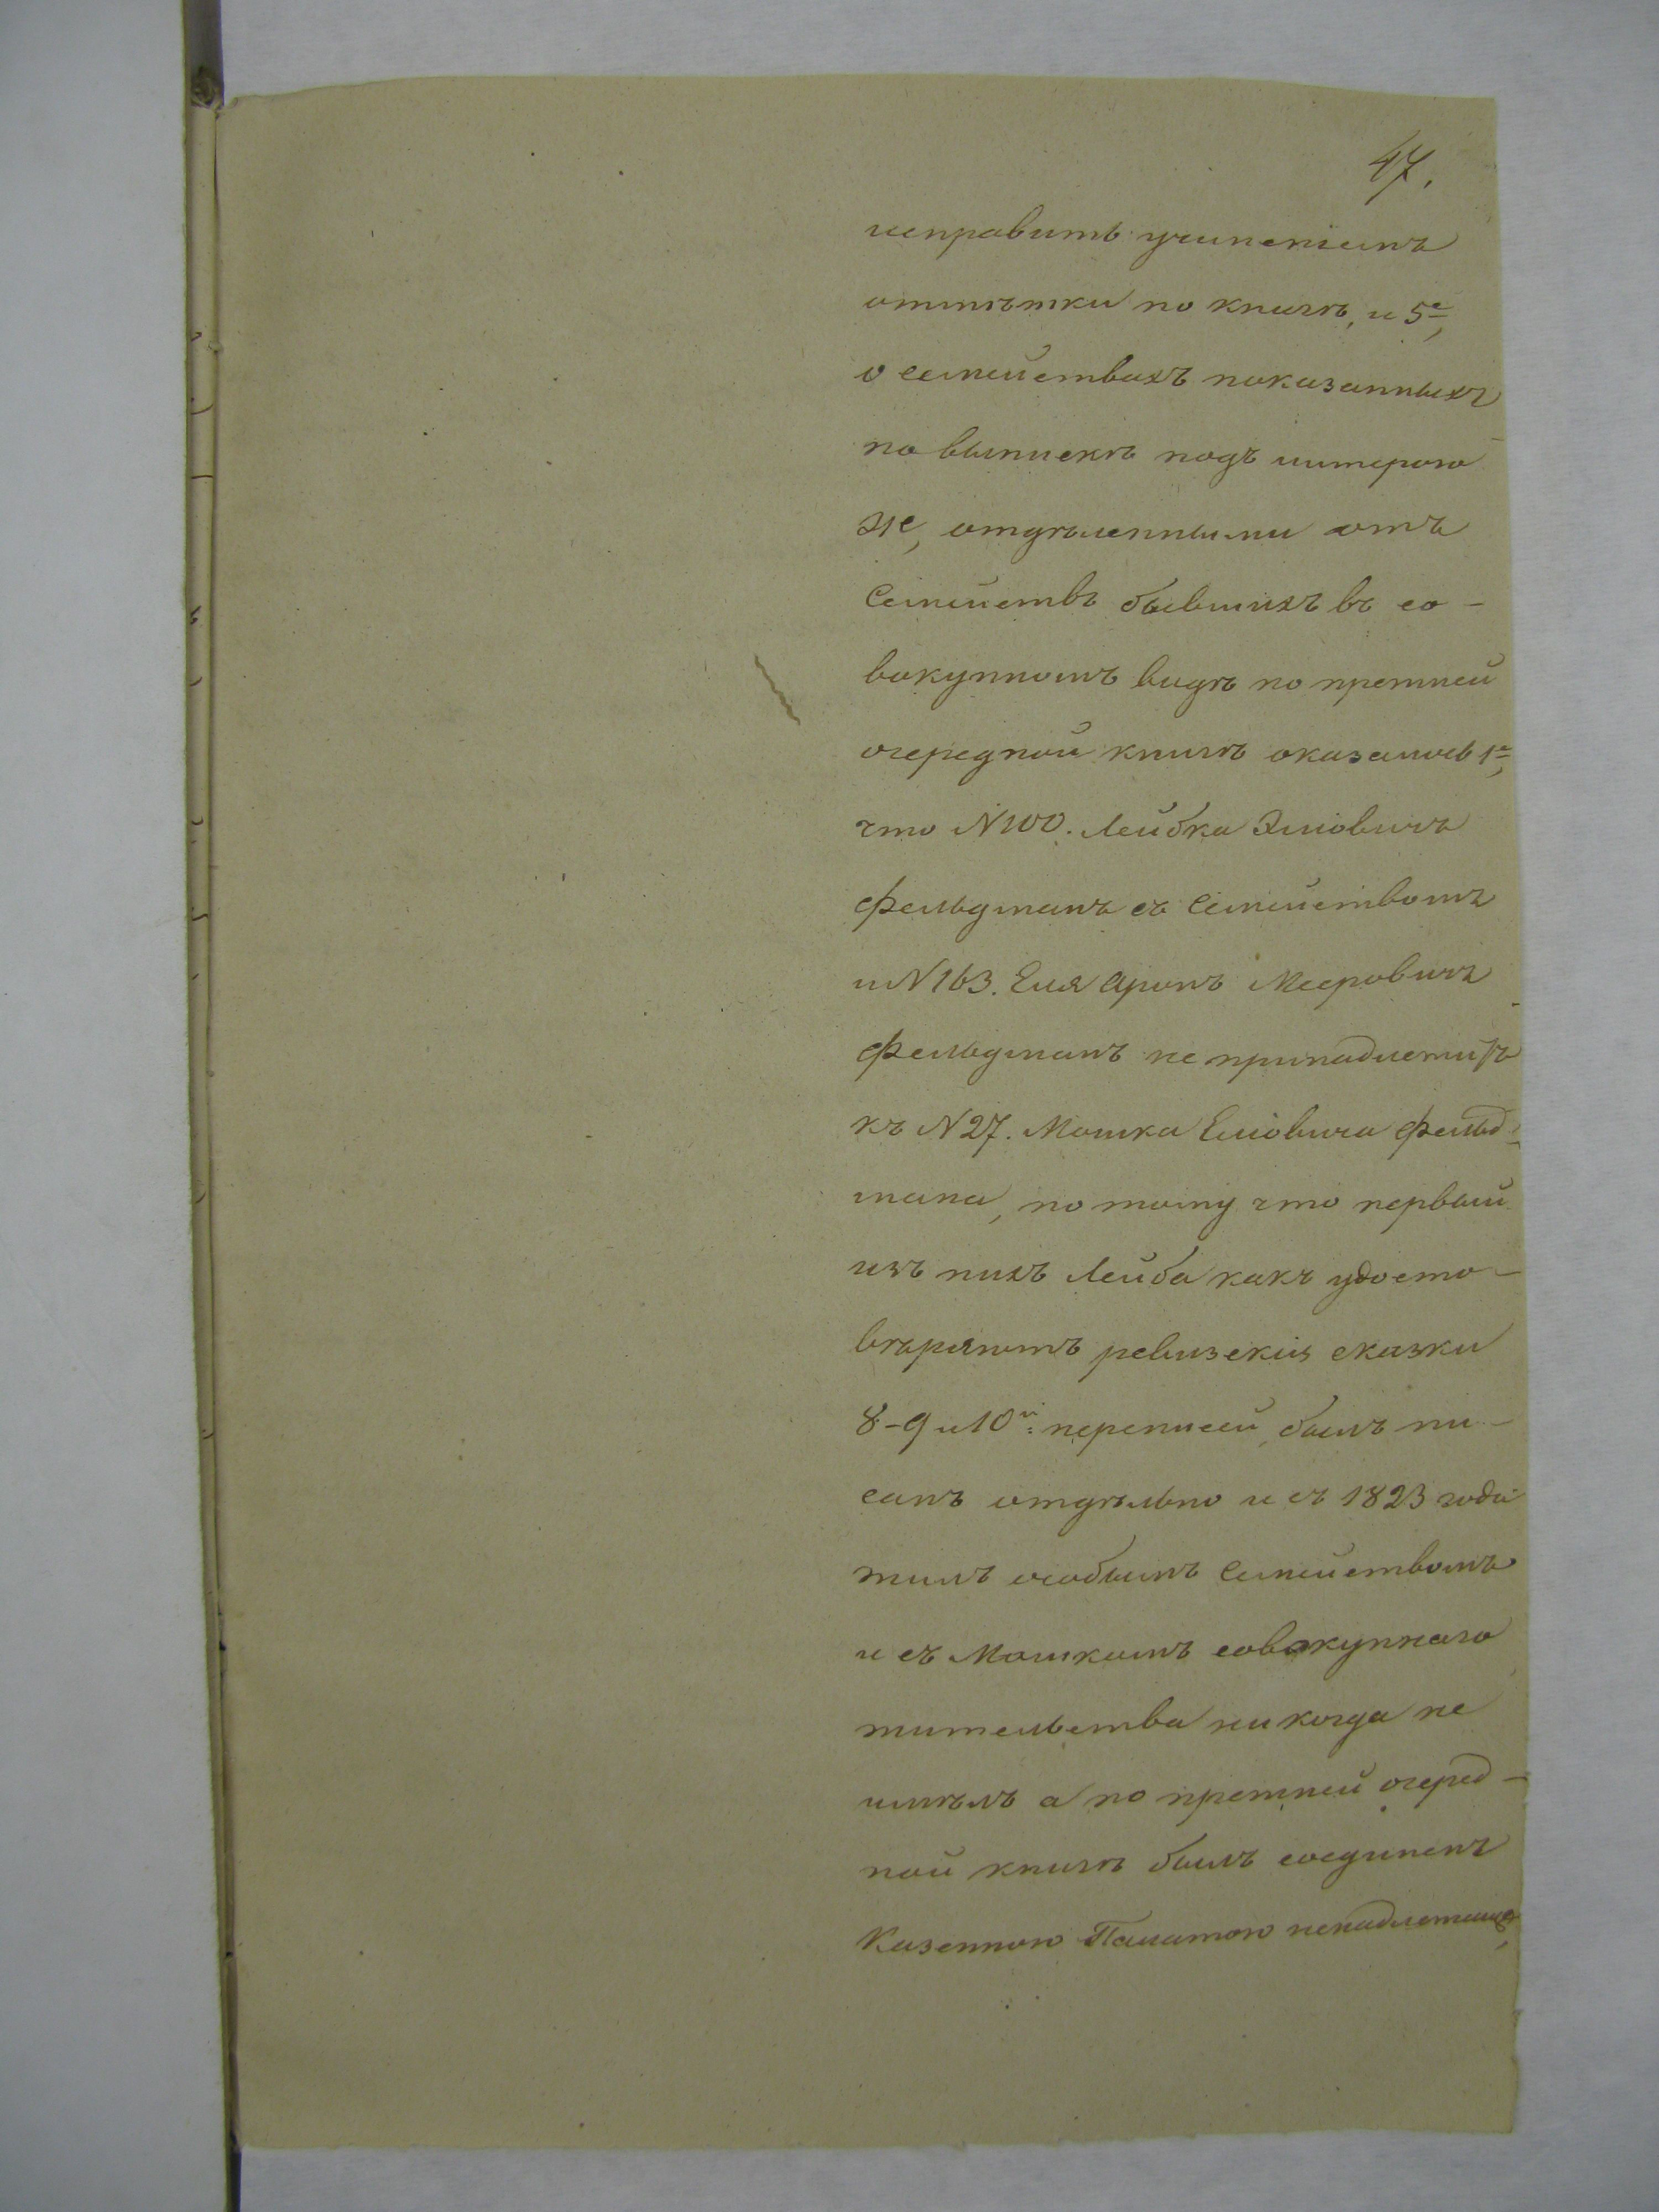 47.
исправить учиненіемъ
отмѣтки по книгѣ, и 5е,
о семействахъ показанныхъ
по выпискѣ подъ литерою
Ж, отдѣленными отъ
Семействъ бывшихъ въ со-
вокупномъ видѣ по прежней
очередной книгѣ оказалось 1е,
что N 100. Лейбка Эліовичъ
Фельдманъ съ Семействомъ
и N 163. Еля Аронъ Мееровичъ
Фельдманъ не принадлежитъ
къ N 27. Мошка Еліовича Фельд-
мана, по тому что первый
изъ нихъ Лейба какъ удосто-
вѣряютъ ревизскія сказки
8-9 и 10й переписей, былъ пи-
санъ отдѣльно и съ 1823 года
жилъ особымъ Семействомъ
и съ Мошкомъ совокупнаго
жительства никогда не
имѣлъ а по прежней очеред-
ной книгѣ былъ соединенъ
Казенною Палатою ненадлежаще,